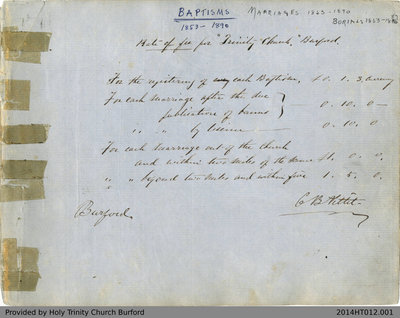 BAPTISMS
1853 - 1890
MARRIAGES 1853 - 1890
BURIALS 1853 - 18
Rate of fee for "Trinity Church," Burford.
For the registering of each Baptism, £0. 1. 3, currency
For each marriage after the due
publication of banns } 0. 10. 0 —
" " by license — 0. 10. 0
For each marriage out of the church
and within two miles of the same £1. 0. 0.
" " beyond two miles and within five 1. 5. 0.
C B Pettit.
Burford
Provided by Holy Trinity Church Burford
2014HT012.001